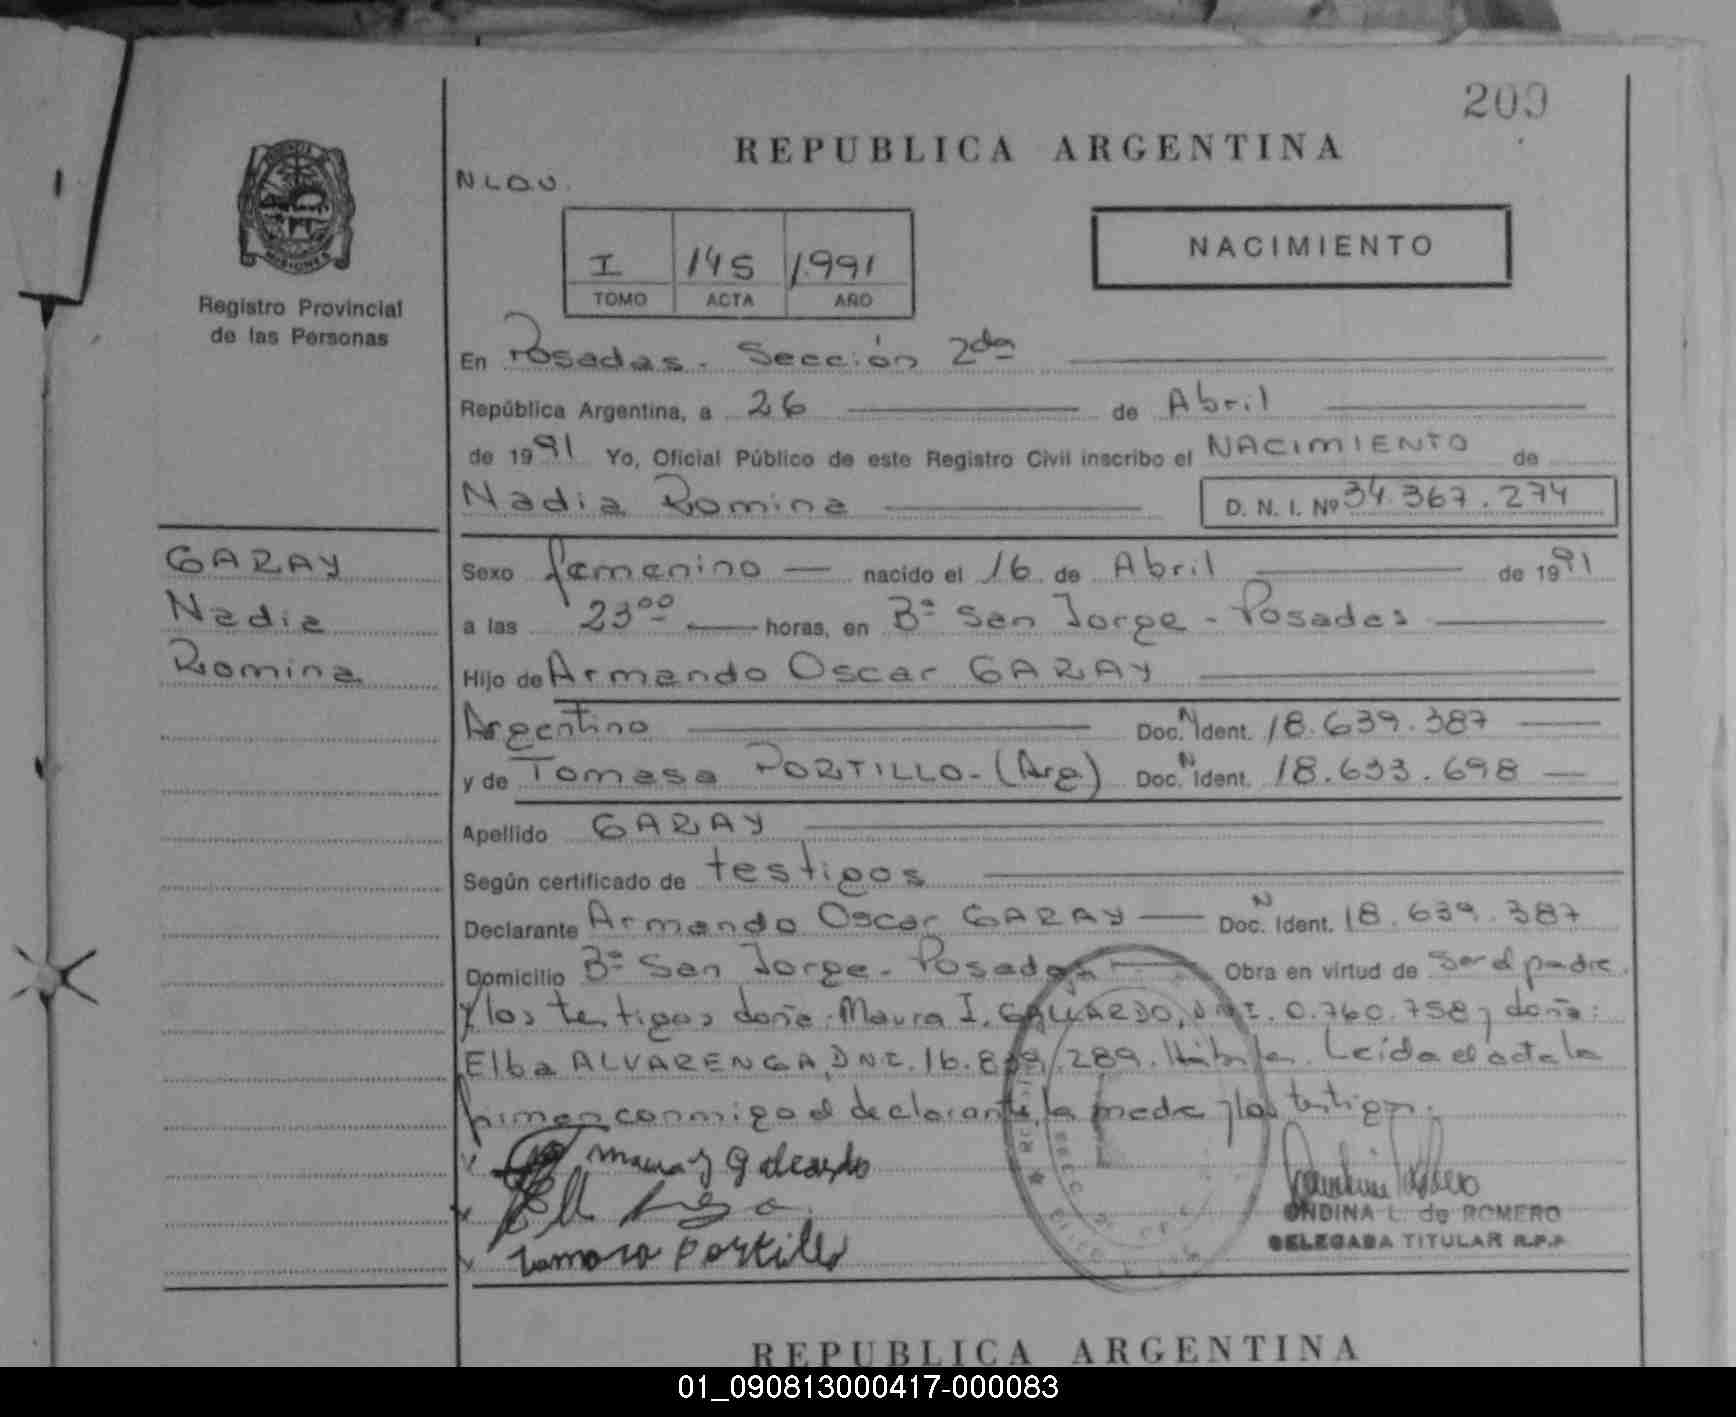 209
REPUBLICA ARGENTINA
N.L.O.V.
I 145 1991
TOMO ACTA AÑO
NACIMIENTO
MISIONES
Registro Provincial
de las Personas
En Posadas. Sección 2da
República Argentina, a 26 de Abril
de 1991 Yo, Oficial Público de este Registro Civil inscribo el NACIMIENTO de
Nadia Romina D. N. I. Nº 34.367.274
GARAY
Nadia
Romina
Sexo femenino nacido el 16 de Abril de 1991
a las 23ºº horas, en Bº San Jorge - Posadas
Hijo de Armando Oscar GARAY
Argentino Doc. N Ident. 18.639.387
y de Tomasa PORTILLO - (Arg) Doc. N Ident. 18.633.698
Apellido GARAY
Según certificado de testigos
Declarante Armando Oscar GARAY Doc. N Ident. 18.639.387
Domicilio Bº San Jorge - Posadas Obra en virtud de ser el padre
y los testigos doña: Maura I. GALLARDO, DNI. 0.760.758 y doña:
Elba ALVARENGA, DNI. 16.829.289. Hábiles. Leída el acta la
firman conmigo el declarante, la madre y los testigos.
Maura Y Galeardo
Tomasa Portillo
ONDINA L. de ROMERO
DELEGADA TITULAR R.P.P.
REPUBLICA ARGENTINA
01_090813000417-000083